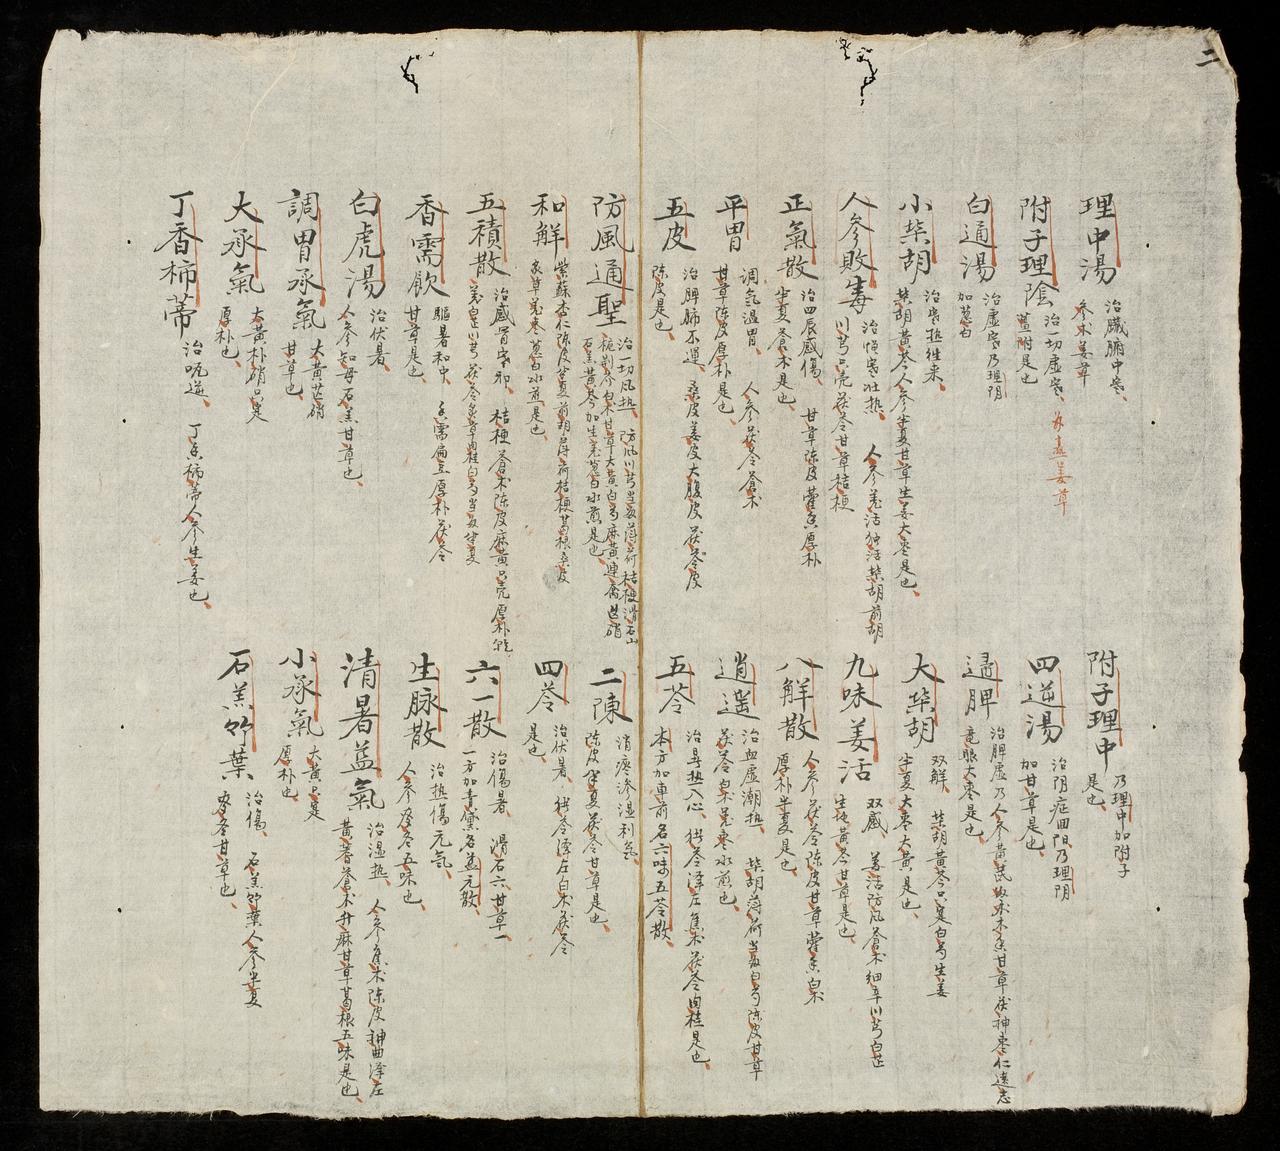 二
理中湯 治臟腑中寒、參术姜草
附子理陰 治一切虛寒、薑附是也
白通湯 治虛寒乃理陰加葱白
小柴胡 治寒热往来、柴胡黄芩人參半夏甘草生姜大枣是也、
人參敗毒 治憎寒壮热、人參羌活独活柴胡前胡川芎只壳茯苓甘草桔梗
正氣散 治四辰感傷、甘草陈皮藿香厚朴半夏蒼术是也、
平胃 調氣温胃、人參茯苓蒼术甘草陈皮厚朴是也、
五皮 治脾肺不運、桑皮姜皮大腹皮茯苓皮陈皮是也、
防風通聖 治一切风热、防风川芎当归薄荷桔梗滑石山梔荆芥白术甘草大黄白芍麻黄連翹芒硝石羔黄芩加生姜葱白水煎是也、
和解 紫蘇杏仁陈皮半夏前胡薄荷桔梗葛根桑皮家草姜枣葱白水煎是也、
五積散 治感冒寒邪、桔梗蒼术陈皮麻黄只壳厚朴乾姜白芷川芎茯苓炙草肉桂白芍当归半夏
香需飲 驅暑和中、香需扁豆厚朴茯苓甘草是也、
白虎湯 治伏暑、人參知母石羔甘草也、
調胃承氣 大黄芒硝甘草也、
大承氣 大黄朴硝只是厚朴也、
丁香柿蒂 治呃逆、丁香柿蒂人參生姜也、
附子理中 乃理中加附子是也、
四逆湯 治阴症四阳乃理阴加甘草是也、
歸脾 治脾虛乃人參黄芪归术木香甘草茯神枣仁遠志竜眼大枣是也、
大柴胡 双解、柴胡黄芩只是白芍生姜半夏大枣大黄是也、
九味姜活 双感、姜活防风蒼术细辛川芎白芷生地黄芩甘草是也、
八解散 人參茯苓陈皮甘草藿香白术厚朴半夏是也、
逍遥 治血虛潮热、柴胡薄荷当归白芍陈皮甘草茯苓白术姜枣水煎也、
五苓 治暑热入心、猪苓泽左焦术茯苓肉桂是也、本方加車前名六味五苓散、
二陳 消痰滲湿利氣、陈皮半夏茯苓甘草是也、
四苓 治伏暑、猪苓泽左白术茯苓是也、
六一散 治傷暑、滑石六甘草一一方加青黛名益元散、
生脉散 治热傷元氣、人參麦冬五味也、
清暑益氣 治湿热、人參焦术陈皮神曲泽左黄蓍蒼术升麻甘草葛根五味是也
小承氣 大黄只是厚朴也、
石羔竹葉 治傷、石羔竹葉人參半夏麦冬甘草也、